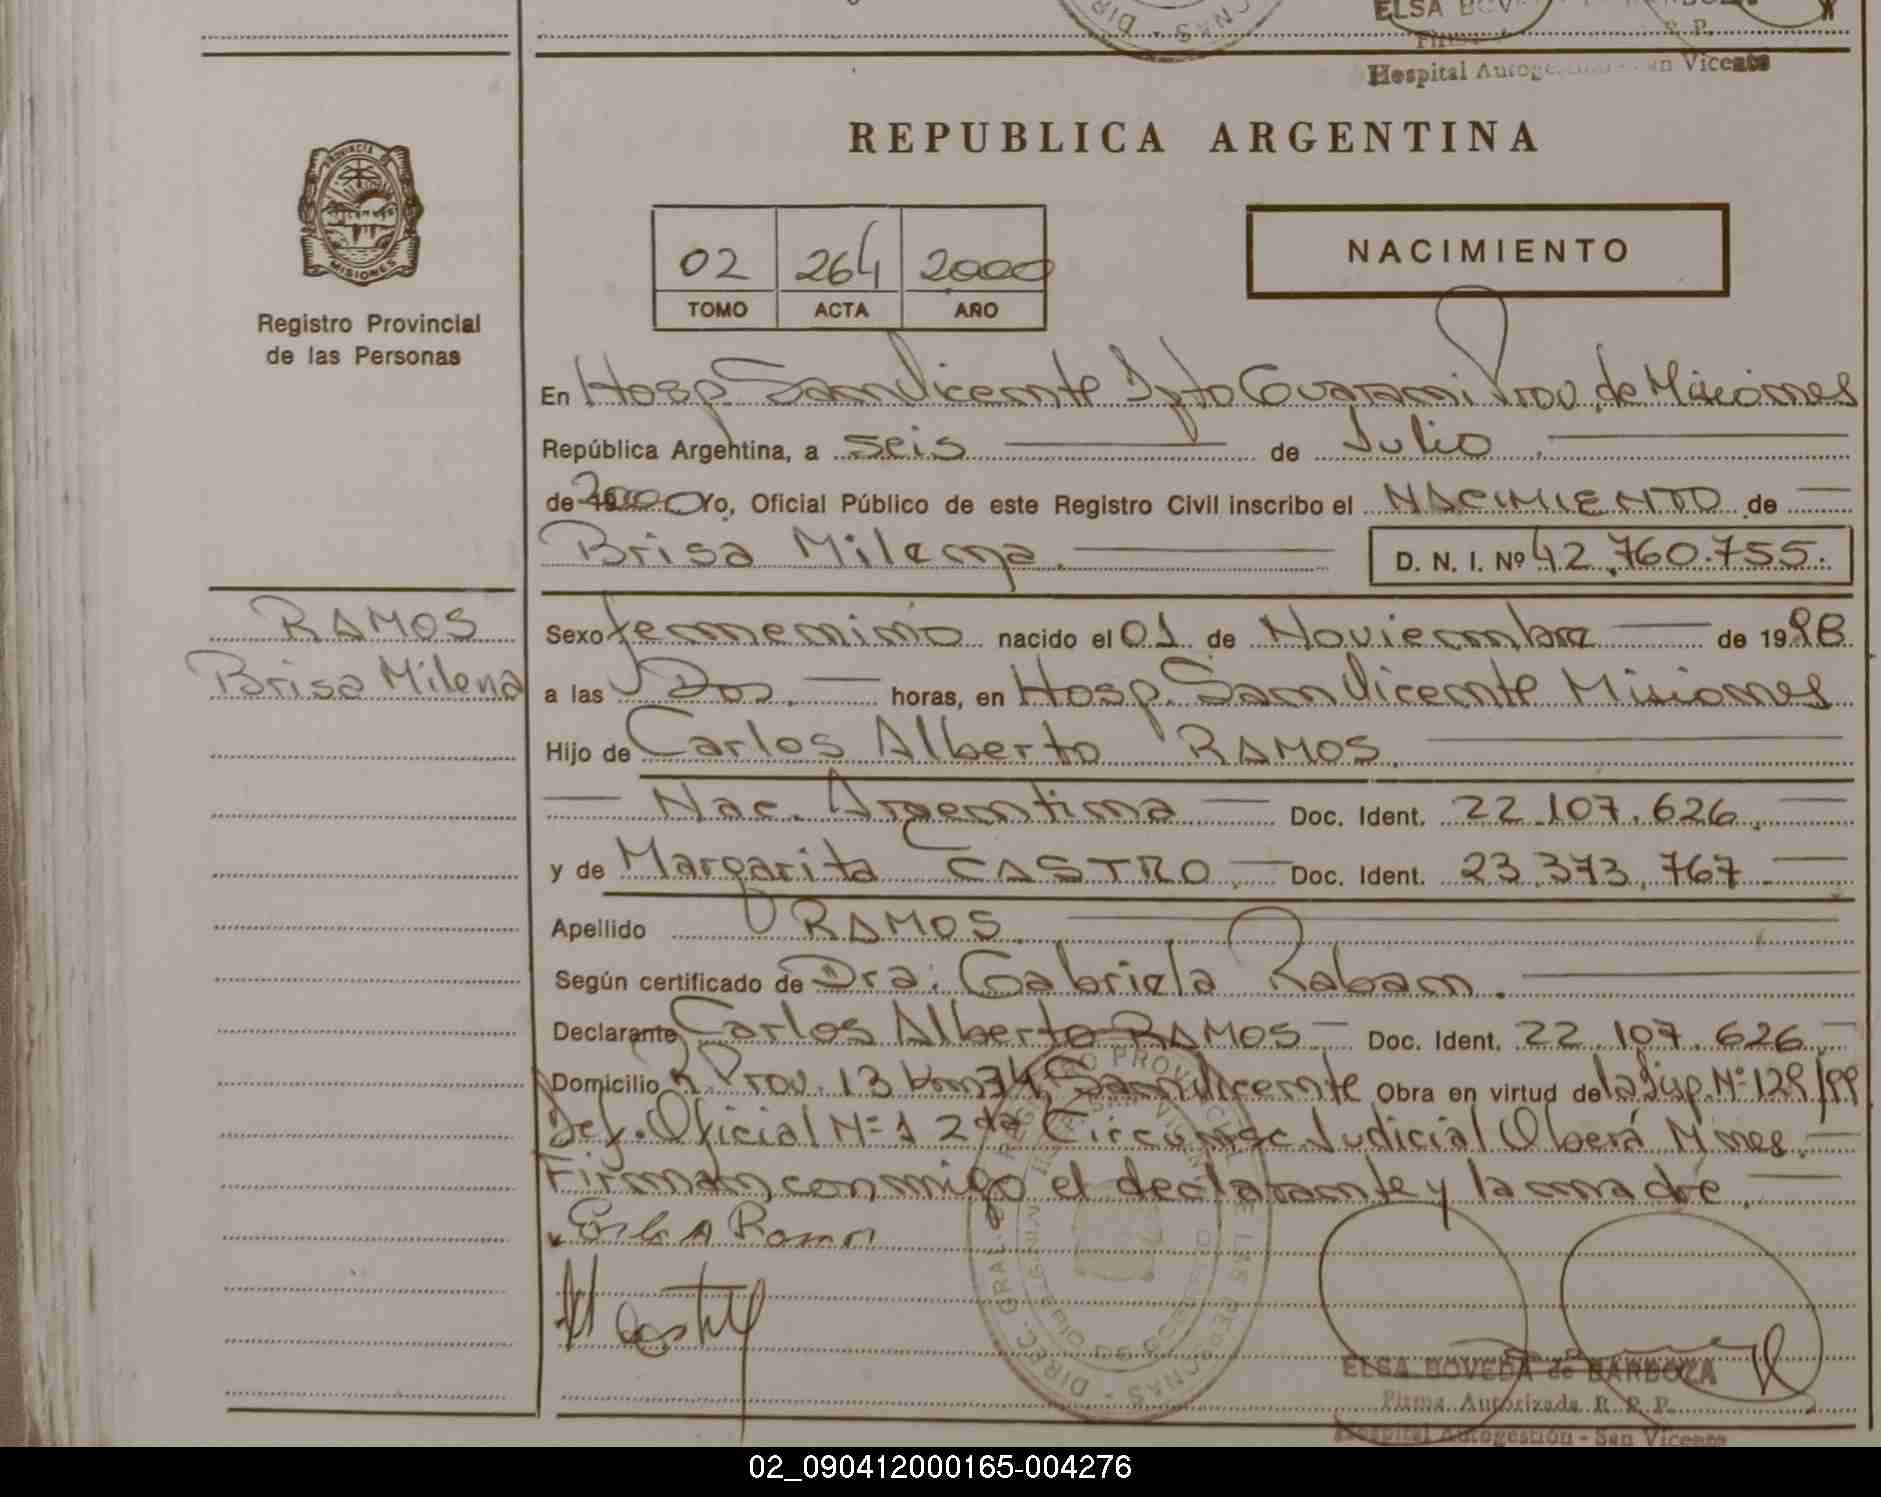 ELSA BOVE
Firma R. P.
Hospital Autoge San Vicente
REPUBLICA ARGENTINA
PROVINCIA DE
MISIONES
Registro Provincial
de las Personas
02 264 2000
TOMO ACTA AÑO
NACIMIENTO
En Hosp. San Vicente Dpto Guarani Prov. de Misiones
República Argentina, a seis de Julio
de 19 2000 Yo, Oficial Público de este Registro Civil inscribo el NACIMIENTO de
Brisa Milena. D. N. I. Nº 42.760.755.
RAMOS
Brisa Milena
Sexo femenino nacido el 01 de Noviembre de 1998
a las Dos. horas, en Hosp. San Vicente Misiones
Hijo de Carlos Alberto RAMOS.
Nac. Argentina Doc. Ident. 22.107.626.
y de Margarita CASTRO. Doc. Ident. 23.373.767
Apellido RAMOS
Según certificado de Dra. Gabriela Raban.
Declarante Carlos Alberto RAMOS Doc. Ident. 22.107.626
Domicilio R. Prov. 13 km 74 San Vicente Obra en virtud de la Disp. Nº 129/99
Def. Oficial Nº 1 2da Circunsc. Judicial Oberá Mnes.
Firman conmigo el declarante y la madre.
ELSA BOVEDA de BARBOZA
Firma Autorizada R. P. P.
Hospital Autogestión - San Vicente
02_090412000165-004276